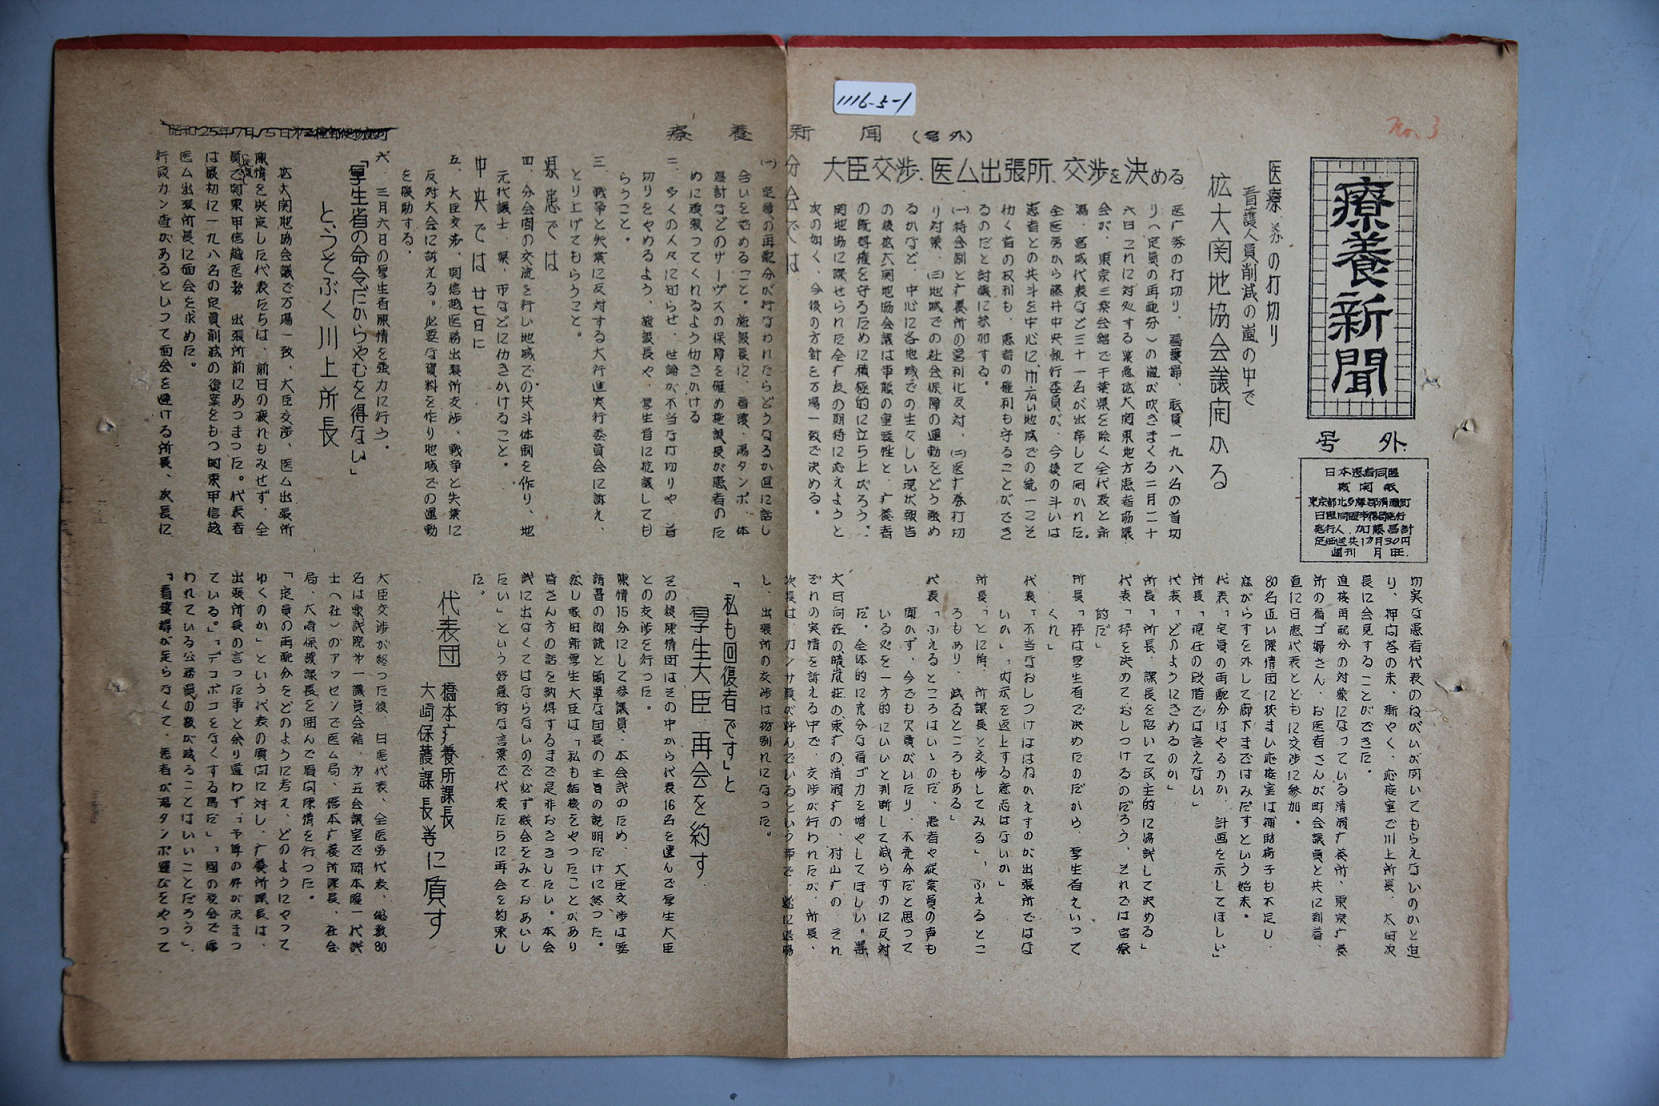 1116-5-1
No. 3
療養新聞(号外)
療養新聞
号外
日本患者同盟
機関紙
定価送共1カ月30円
週刊 月 日
医療券の打切り
看護人員削減の嵐の中で
拡大関地協会議開かる
大臣交渉、医ム出張所、交渉を決める
医广券の打切り、看護婦、職員一九八名の首切
り(定員の再配分)の嵐が吹きまくる二月二十
六日これに対処する緊急拡大関東地方患者協議
会が、東京三楽会館で千葉県を除く全代表と新
潟、宮城代表など三十一名が出席して開かれた。
全医労から藤井中央執行委員が、今後の斗いは
患者との共斗を中心に、巾広い地域での統一こそ
働く者の权利も、患者の権利も守ることができ
るのだと討議に参加する。
(一)特会制と广養所の営利化反対、(二)医广券打切
り対策、(三)地域での社会保障の運動をどう強め
るかなど、中心に各地域での生々しい現状報告
の後拡大関地協会議は事態の重要性と、广養者
の既得権を守るために積極的に立ち上がろう、
関地協に課せられた全广友の期待に応えようと
次の如く、今後の方針を万場一致で決める。
分会では
(一)定員の再配分が行なわれたらどうなるか直に話し
合いをすめること。施設長に、看護、湯タンポ、体
温計などのサーヴスの保障を催め施設長が患者のた
めに頑張ってくれるよう仂きかける
二、多くの人々に知らせ、世論が不当な打切りや、首
切りをやめるよう、施設長や、厚生省に抗議しても
らうこと。
三、戦争と失業に反対する大行進実行委員会に訴え、
とり上げてもらうこと。
県患では
四、分会間の交流を行い地域での共斗体制を作り、地
元代議士、県、市などに仂きかけること。
中央では 廿七日に
五、大臣交渉、関信越医務出張所交渉、戦争と失業に
反対大会に訴える。必要な資料を作り地域での運動
を援助する。
六、三月六日の厚生省陳情を強力に行う。
「厚生省の命令だからやむを得ない」
とうそぶく川上所長
拡大関地協会議で万場一致、大臣交渉、医ム出張所
陳情を決定した代表たちは、前日の疲れもみせず、全
員で関東甲信越医務出張所前にあつまった。代表者
は最初に一九八名の定員削減の復案をもつ関東甲信越
医ム出張所長に面会を求めた。
行政カン査があるといって面会を避ける所長、次長に
切実な患者代表のねがいが聞いてもらえないのかと迫
り、押問答の末、漸やく、応接室で川上所長、大町次
長に会見することができた。
直接再配分の対象になっている清瀬广養所、東京广養
所の看ゴ婦さん、お医者さんが町会議員と共に到着、
直に日患代表とともに交渉に参加。
80名近い陳情団に狭まい応接室は補助椅子も不足し、
窓ガラスを外して廊下まではみだすという始末。
代表「定員の再配分はやるのか、計画を示してほしい」
所長「現在の段階では言えない」
代表「どのようにきめるのか」
所長「所長、課長を招いて民主的に協議して決める」
代表「枠を決めておしつけるのだろう、それでは官僚
的だ」
所長「枠は厚生省で決めたのだから、厚生省えいって
くれ」
代表「不当なおしつけははねかえすのが出張所ではな
いか」「
所長「とに角、所課長と交渉してみる」、「ふえるとこ
ろもあり、減るところもある」
代表「ふえるところはいゝのだ、患者や従業員の声も
聞かず、今でも欠員がいたり、不充分だと思って
いるのを一方的にいいと判断して減らすのに反対
だ。全体的に充分な看ゴ力を増やしてほしい。
ぞれの実情を訴える中で、交渉が行われたが、所長、
し、出張所の交渉は物別れになった。
「私も回復者です」と
厚生大臣 再会を約す
その後陳情団はその中から代表16名を選んで厚生大臣
との交渉を行った。
陳情15分にして参議員、本会議のため、大臣交渉は要
請書の朗読と簡単な団長の主旨の説明だけに終った。
然し黒田新厚生大臣は「私も結核をやったことがあり
皆さん方の話を納得するまで是非おききしたい。本会
議に出なくてはならないので必ず機会をみておあいし
たい」という好意的な言葉で代表たちに再会を約束し
た。
代表団 橋本广養所課長
大崎保護課長等に質す
大臣交渉が終った後、日患代表、全医労代表、総数80
名は衆議院第一議員会館、第五会議室で岡本隆一代議
士(社)のアッセンで医ム局、橋本广養所課長、社会
局、大崎保護課長を囲んで質問陳情を行った。
「定員の再配分をどのように考え、どのようにやって
ゆくのか」という代表の質問に対し、广養所課長は、
出張所長の言った事と余り違わず、「予算の枠が決まっ
ている。」「デコボコをなくする為だ」、「国の政令で傭
われている公務員の数が減ることはいいことだろう」、
「看護婦が足らなくて、患者が湯タンポ運びをやって